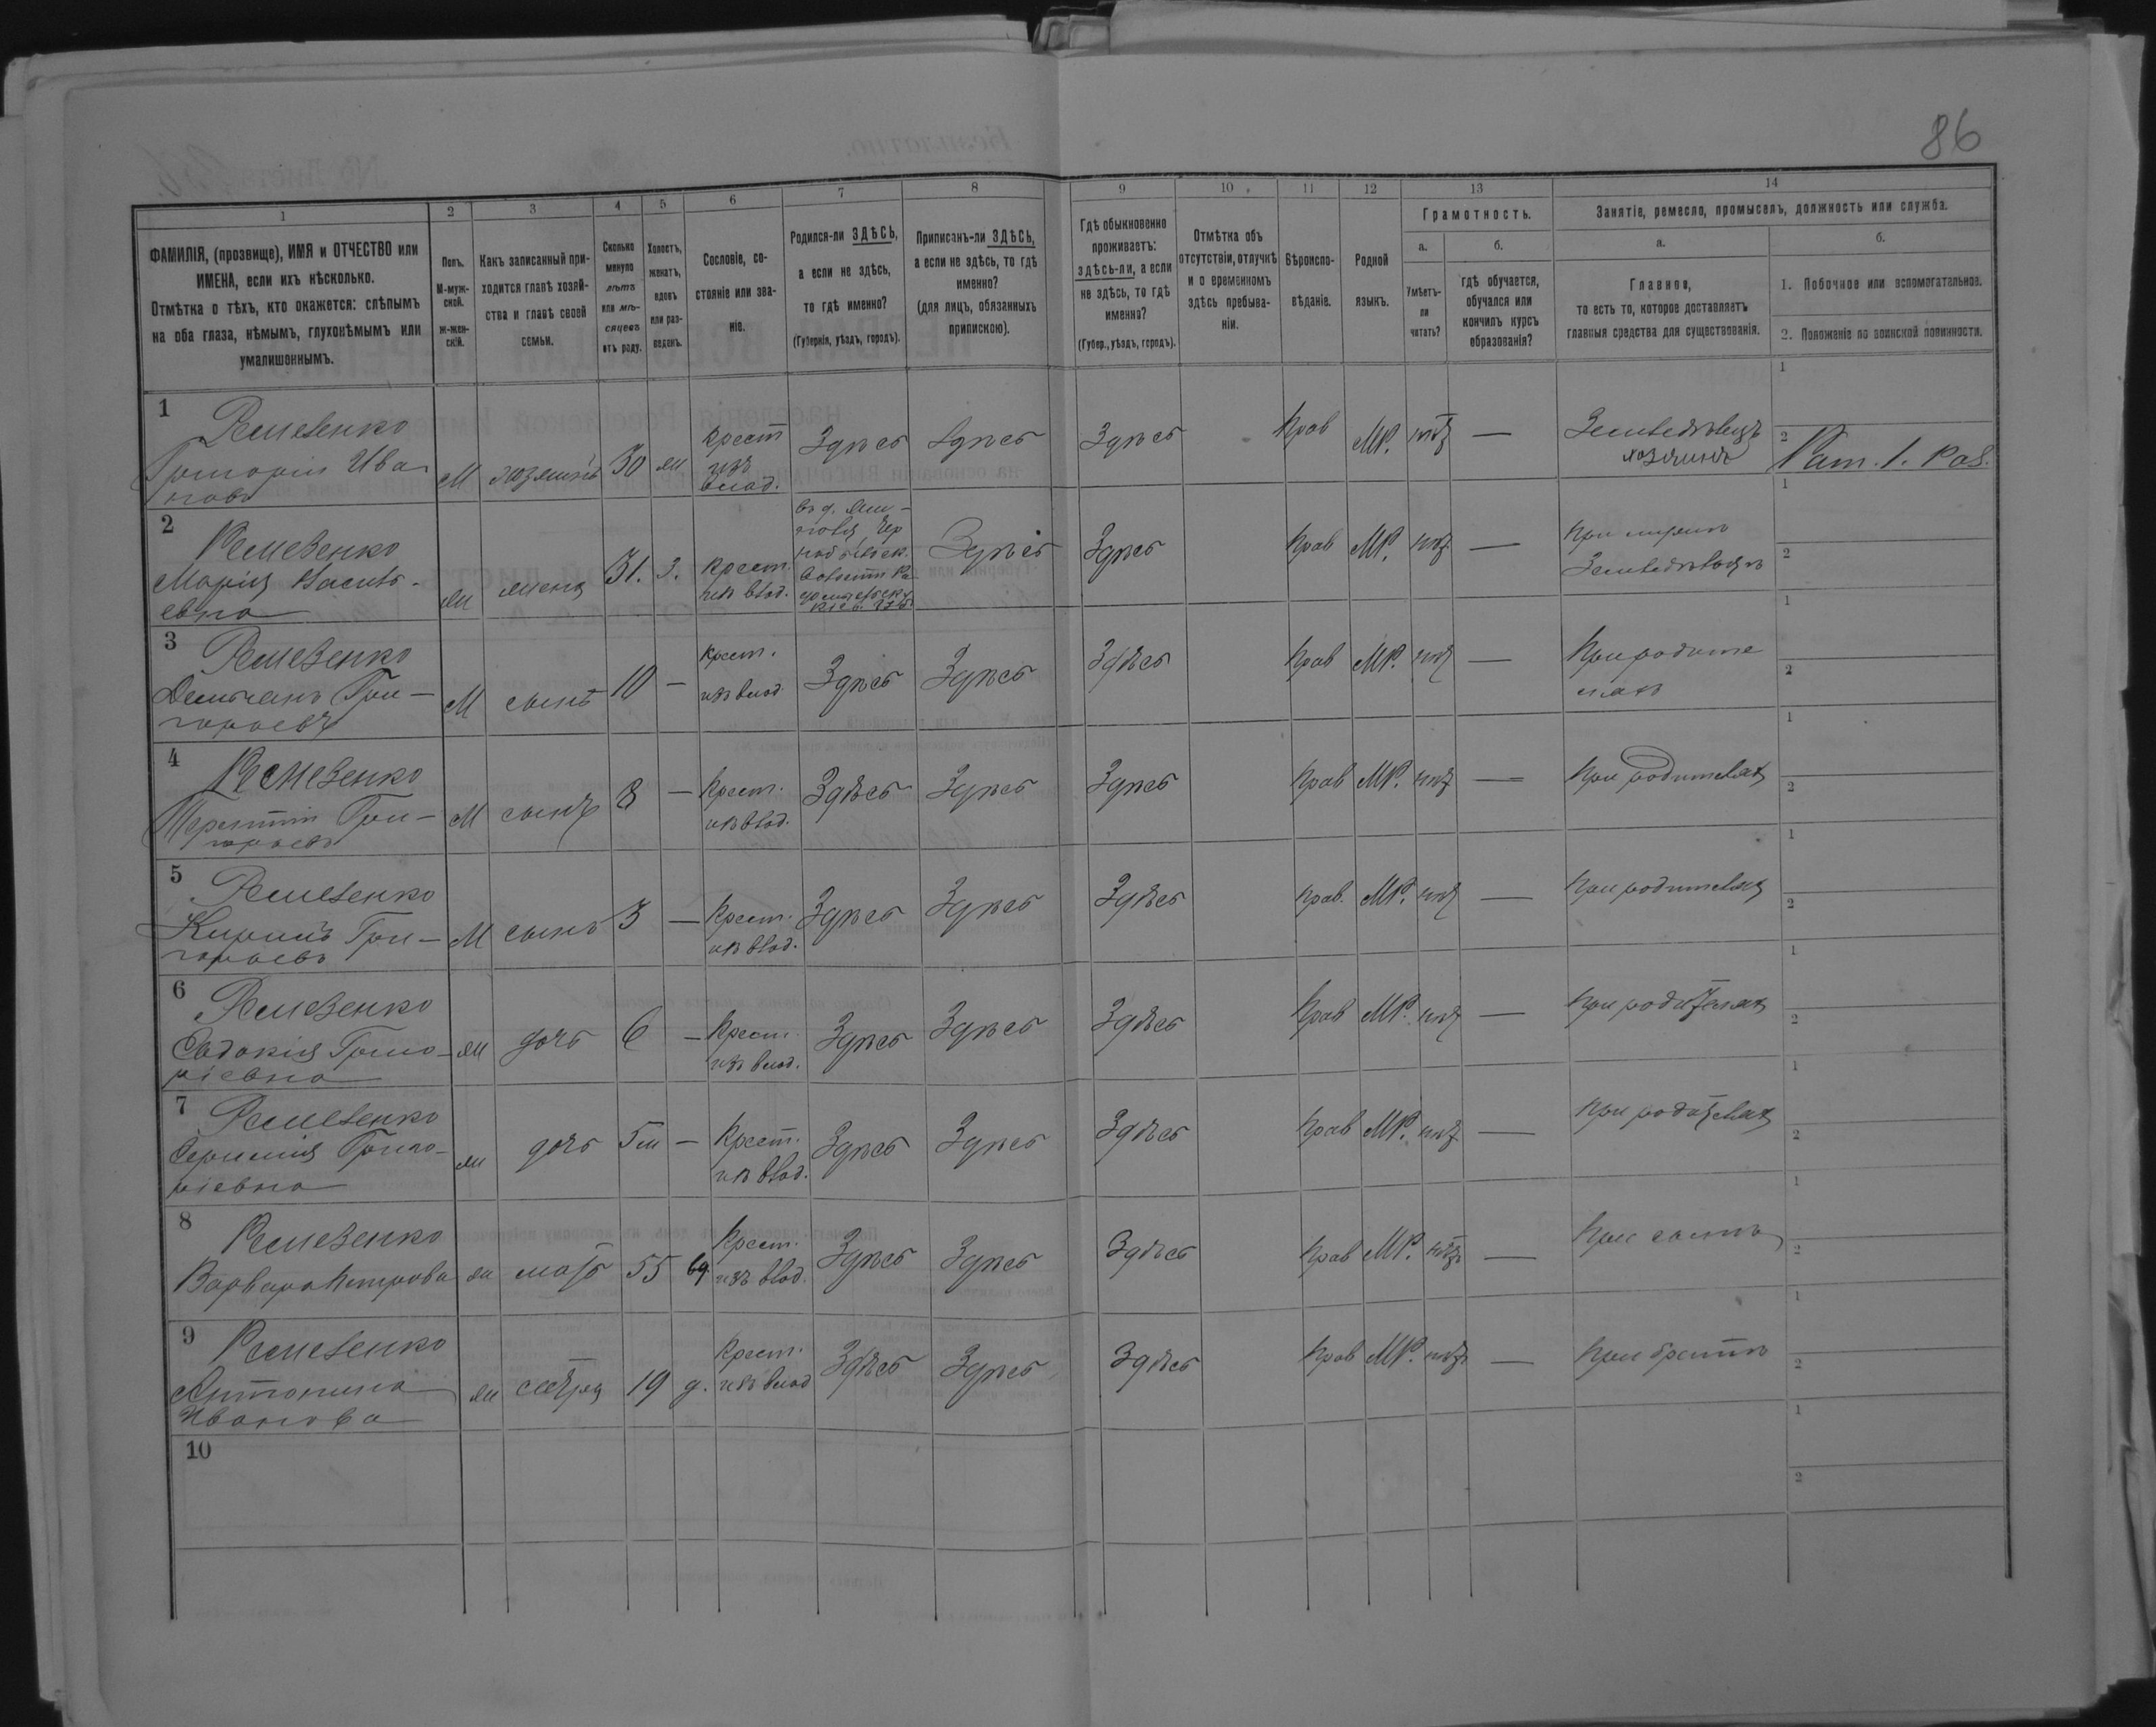 86
1 2 3 4 5 6 7 8 9 10 11 12 13 14
ФАМИЛІЯ, (прозвище), ИМЯ и ОТЧЕСТВО или
ИМЕНА, если ихъ нѣсколько.
Отмѣтка о тѣхъ, кто окажется: слѣпымъ
на оба глаза, нѣмымъ, глухонѣмымъ или
умалишоннымъ.
Полъ.
М-муж-
ской.
Ж-жен-
скій.
Какъ записанный при-
ходится главѣ хозяй-
ства и главѣ своей
семьи.
Сколько
минуло
лѣтъ
или мѣ-
сяцевъ
отъ роду.
Холостъ,
женатъ,
вдовъ
или раз-
веденъ.
Сословіе, со-
стояніе или зва-
ніе.
Родился-ли ЗДѢСЬ,
а если не здѣсь,
то гдѣ именно?
(Губернія, уѣздъ, городъ).
Приписанъ-ли ЗДѢСЬ,
а если не здѣсь, то гдѣ
именно?
(для лицъ, обязанныхъ
припискою).
Гдѣ обыкновенно
проживаетъ:
здѣсь-ли, а если
не здѣсь, то гдѣ
именно?
(Губер., уѣздъ, городъ).
Отмѣтка объ
отсутствіи, отлучкѣ
и о временномъ
здѣсь пребыва-
ніи.
Вѣроиспо-
вѣданіе.
Родной
языкъ.
Грамотность.
а.
Умѣетъ-
ли
читать?
б.
гдѣ обучается,
обучался или
кончилъ курсъ
образованія?
Занятіе, ремесло, промыселъ, должность или служба.
а.
Главное,
то есть то, которое доставляетъ
главныя средства для существованія.
б.
1. Побочное или вспомогательное.
2. Положеніе по воинской повинности.
1 Ремезенко
Григорій Ива-
новъ
М хозяинъ 30 ж крест
изъ
влад.
Здѣсь Здѣсь Здѣсь Прав МР. нѣтъ —
Земледѣлецъ
хозяинъ
1
2 Рат. 1. Раз.
2 Ремезенко
Марія Василь-
евна
ж жена 31. З. Крест.
изъ влад.
Здѣсь Здѣсь Прав МР. нѣтъ —
При мужѣ
Земледѣлецъ
1
2
3 Ремезенко
Демьянъ Гри-
горьевъ
М сынъ 10 — Крест.
изъ влад.
Здѣсь Здѣсь Здѣсь Прав МР. нѣтъ —
При родите
ляхъ
1
2
4 Ремезенко
Терентій Гри-
горьевъ
М сынъ 8 — Крест.
изъ влад.
Здѣсь Здѣсь Здѣсь Прав МР. нѣтъ — При родителяхъ
1
2
5 Ремезенко
Кирилъ Гри-
горьевъ
М сынъ 3 — Крест.
изъ влад.
Здѣсь Здѣсь Здѣсь Прав. МР. нѣтъ — При родителяхъ
1
2
6 Ремезенко
Евдокія Григо-
ріевна
ж дочь 6 — Крест.
изъ влад.
Здѣсь Здѣсь Здѣсь Прав МР. нѣтъ — При родителяхъ
1
2
7 Ремезенко
Григо-
ріевна
ж дочь 5 м — Крест.
изъ влад.
Здѣсь Здѣсь Здѣсь Прав МР. нѣтъ — При родителяхъ
1
2
8 Ремезенко
Варвара Петрова
ж мать 55 вд. Крест.
изъ влад.
Здѣсь Здѣсь Здѣсь Прав МР. нѣтъ — При сынѣ
1
2
9 Ремезенко
Антонина
Иванова
ж сестра 19 д. Крест.
изъ влад
Здѣсь Здѣсь Здѣсь Прав МР. нѣтъ — При братѣ
1
2
10
1
2